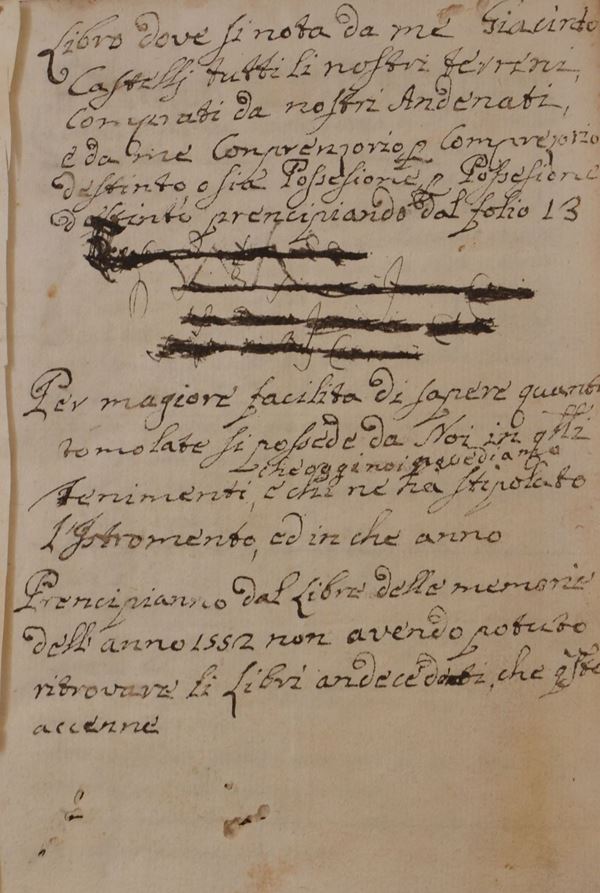 Libro dove si nota da me Giacinto
Castelli tutti li nostri terreni,
comprati da nostri Andenati,
e da me Conprenzorio p Comprezorio
destinto o sia Possesione p Possesione
destinto prencipiando dal folio 13
Per magiore facilita di sapere quanti
tomolate si possede da Noi in qsti
che oggi noi possediamo
Tenimenti, e chi ne ha stipolato
l'Istromento, ed in che anno
Prencipianno dal Libre delle memorie
dell'anno 1552 non avendo potuto
ritrovare li Libri andecedenti, che qste
accenne